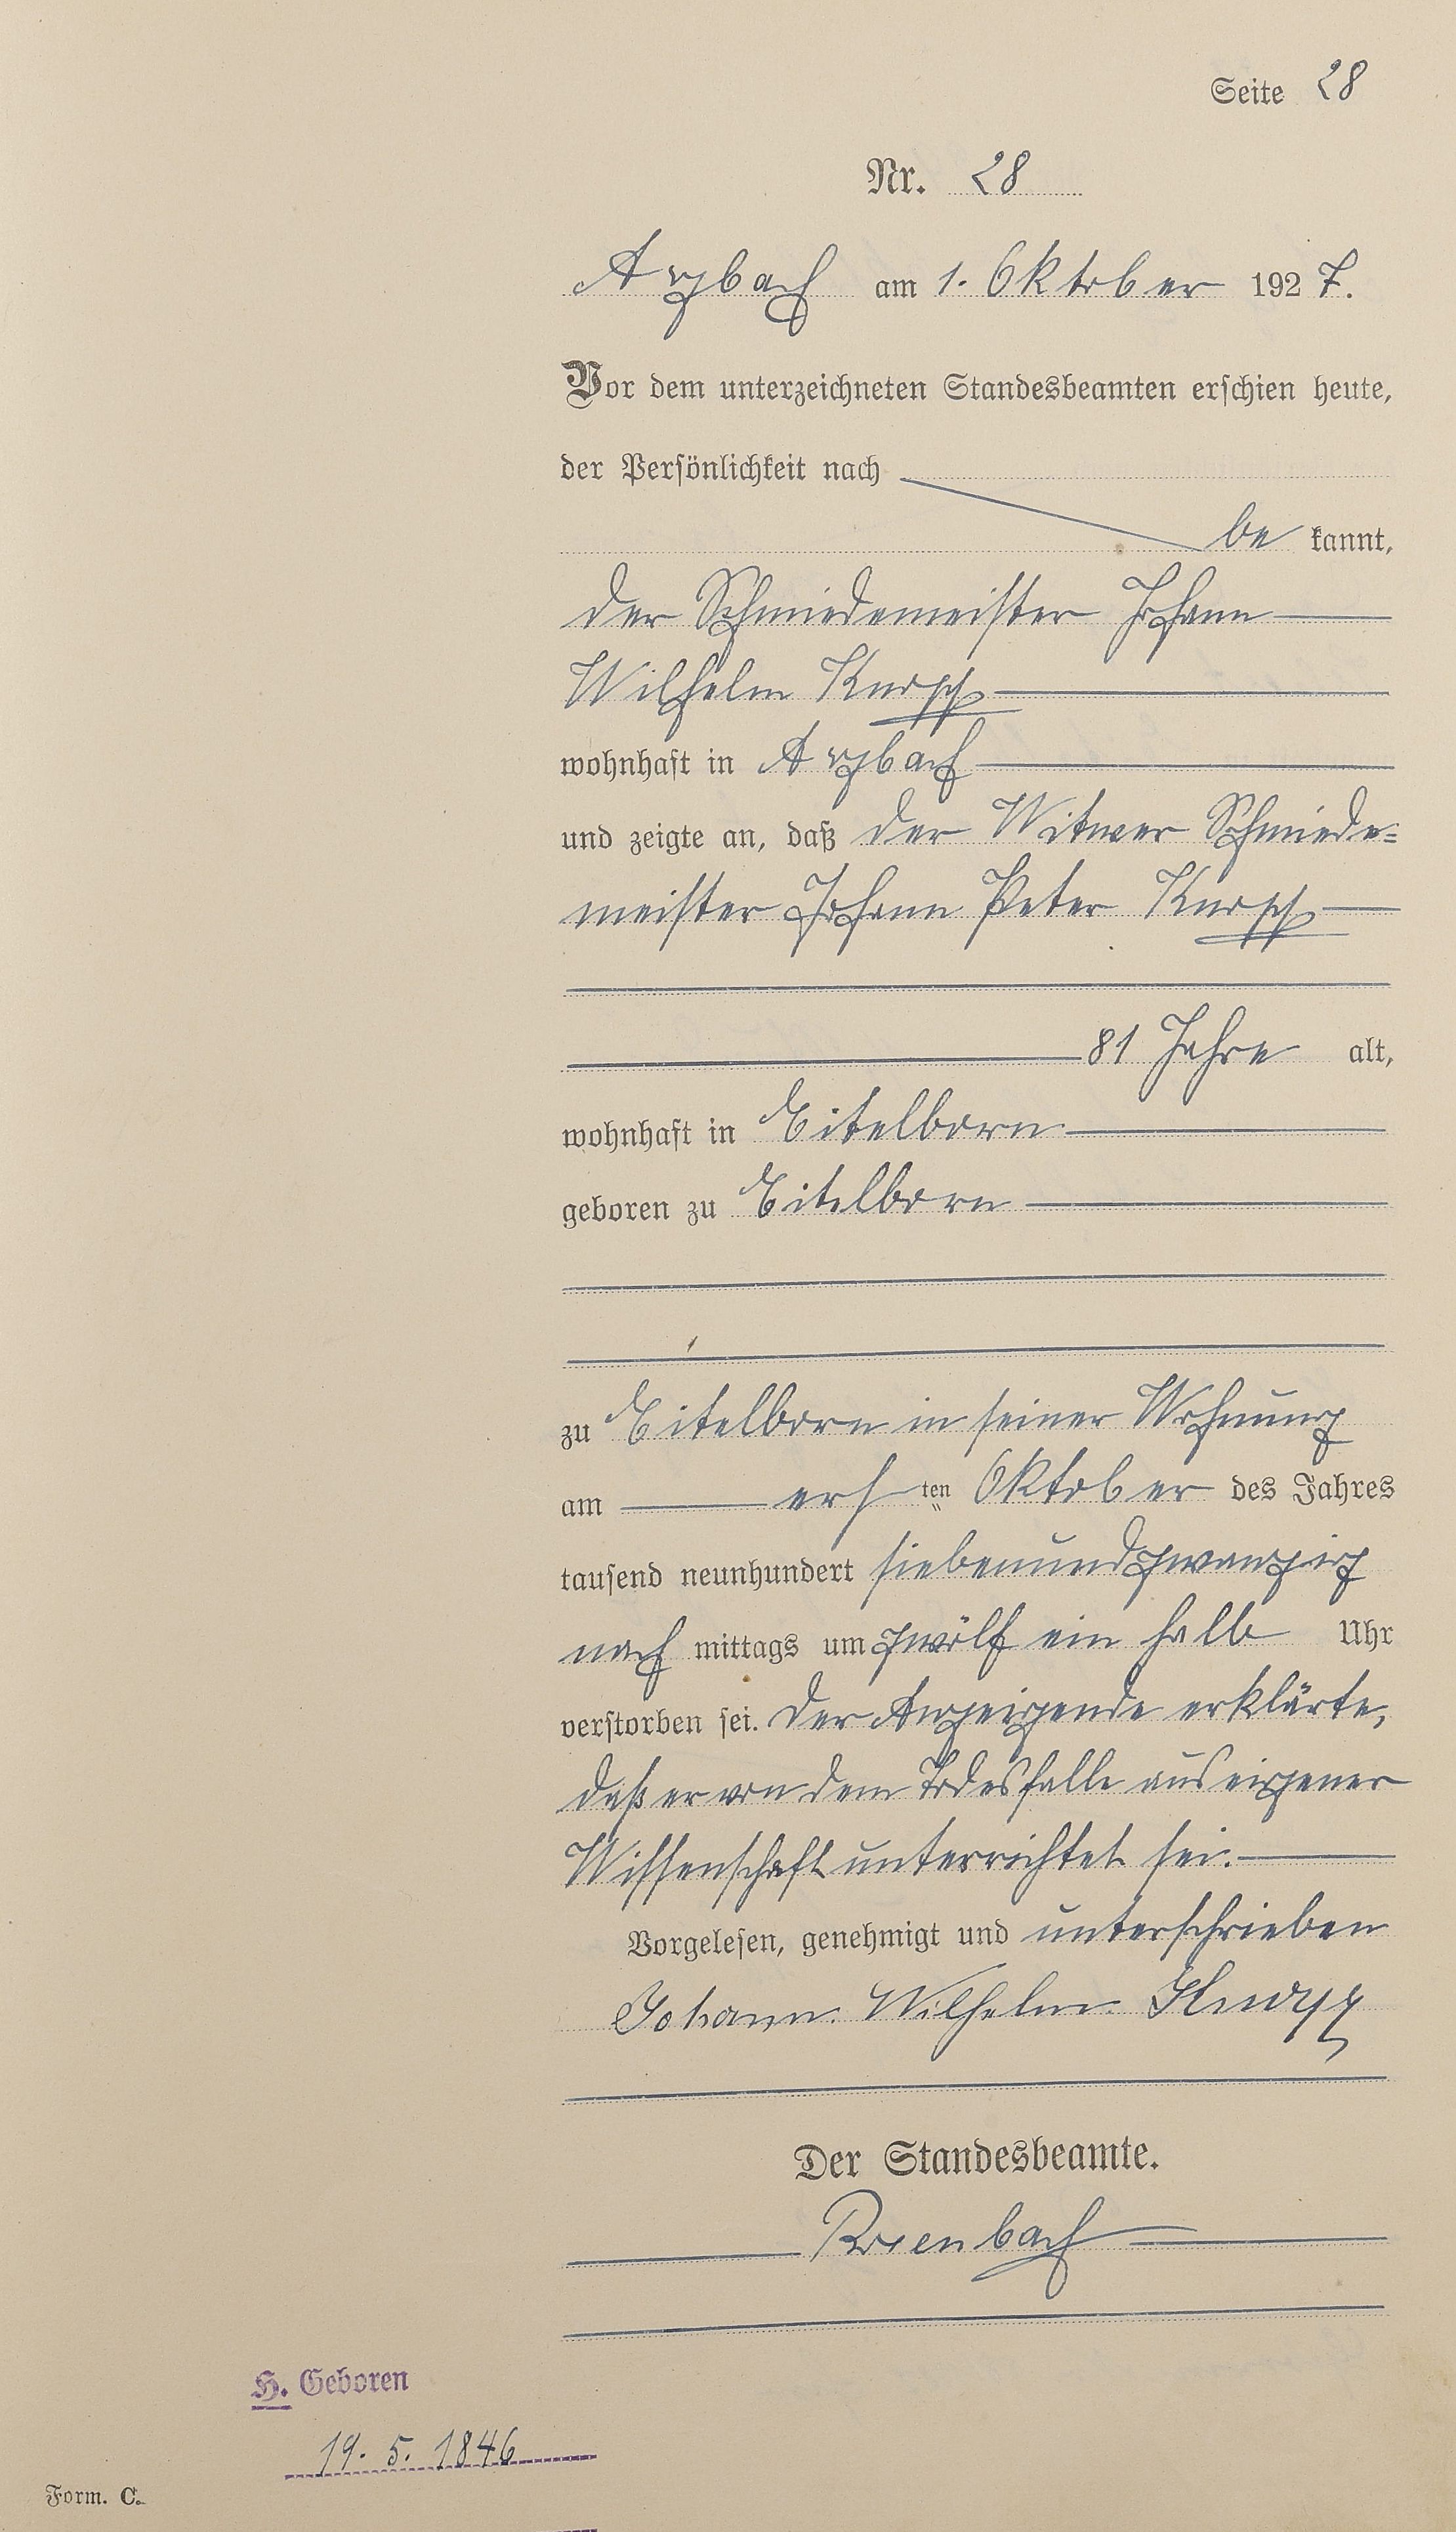 Seite 28
Nr. 28
Arzbach am 1. Oktober 1927.
Vor dem unterzeichneten Standesbeamten erschien heute,
der Persönlichkeit nach
be kannt,
der Schmiedemeister Johann
Wilhelm Knopp
wohnhaft in Arzbach
und zeigte an, daß der Witwer Schmiede=
meister Johann Peter Knopp
81 Jahre alt,
wohnhaft in Eitelborn
geboren zu Eitelborn
zu Eitelborn in seiner Wohnung
am ersten Oktober des Jahres
tausend neunhundert siebenundzwanzig
nach mittags um zwölf ein halb Uhr
verstorben sei. Der Anzeigende erklärte,
daß er von dem Todesfalle aus eigener
Wissenschaft unterrichtet sei.
Vorgelesen, genehmigt und unterschrieben
Johann Wilhelm Knopp
Der Standesbeamte.
Rosenbach
H. Geboren
19. 5. 1846
Form. C.